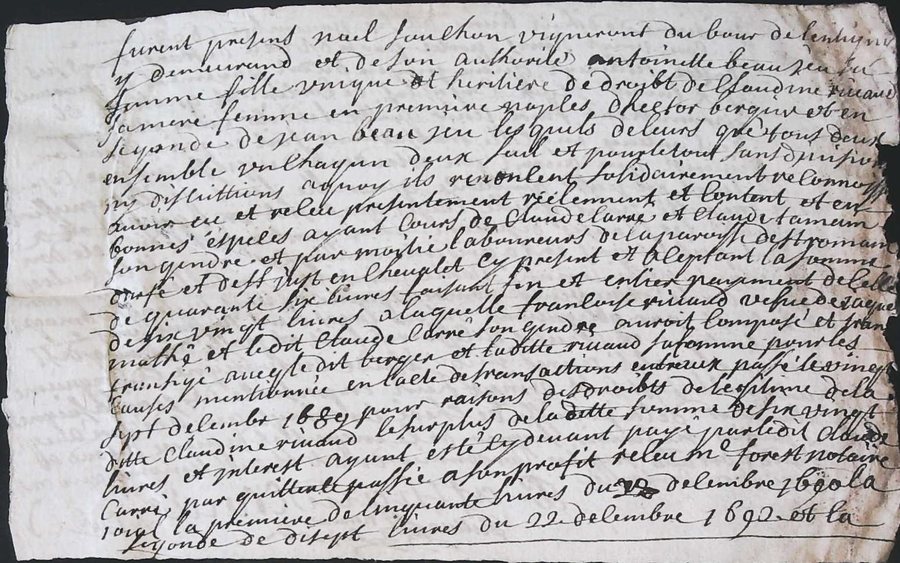 furent presens noel souchon vigneront du bour de
y demeurand et de son authorité antoinette beaujeu sa
famme fille unique et heritiere de droibt de Claudine rivaud
sa mere femme en premiere noples d'hector bergier et en
segonde de Jean beau jeu lesquils de leurs gré tous deux
ensemble un chaqun deux seul et pour le tout sans division
ny discuttions a quoy ils renonlent solidairement reconnoisse
avoir eu et releu presentement réelement et contant et en
bonnes espeles ayant cours de Claude Carre et Claude tamain
son gendre et par moitie laboureurs de la paroisse de st romain
durfé et de st Just en chevalet Cy present et aleptant la somme
de quarante six livres faisant fin et entier payement de celle
de six vingt livres a laquelle francoise rivaud vefve de Jaque
mathé et ledit Claude Carré son gendre auroit composé et tran
tranchigé avecq ledit berger et laditte rivaud sa femme pour les
causes mentionnée en l'acte de transactions entreux passé le vingt
sept delembr 1689 pour raisons des droibts de legitime de la
ditte Claudine rivaud le surplus de la ditte somme de six vingt
livres et interest ayant esté cy devant payé par ledit Claude
Carré par quittente passée a son profit releu me forest notaire
royal la premiere de cinquante livres du 22 delembre 1690 la
segonde de disept livres du 22 delembre 1692 et la